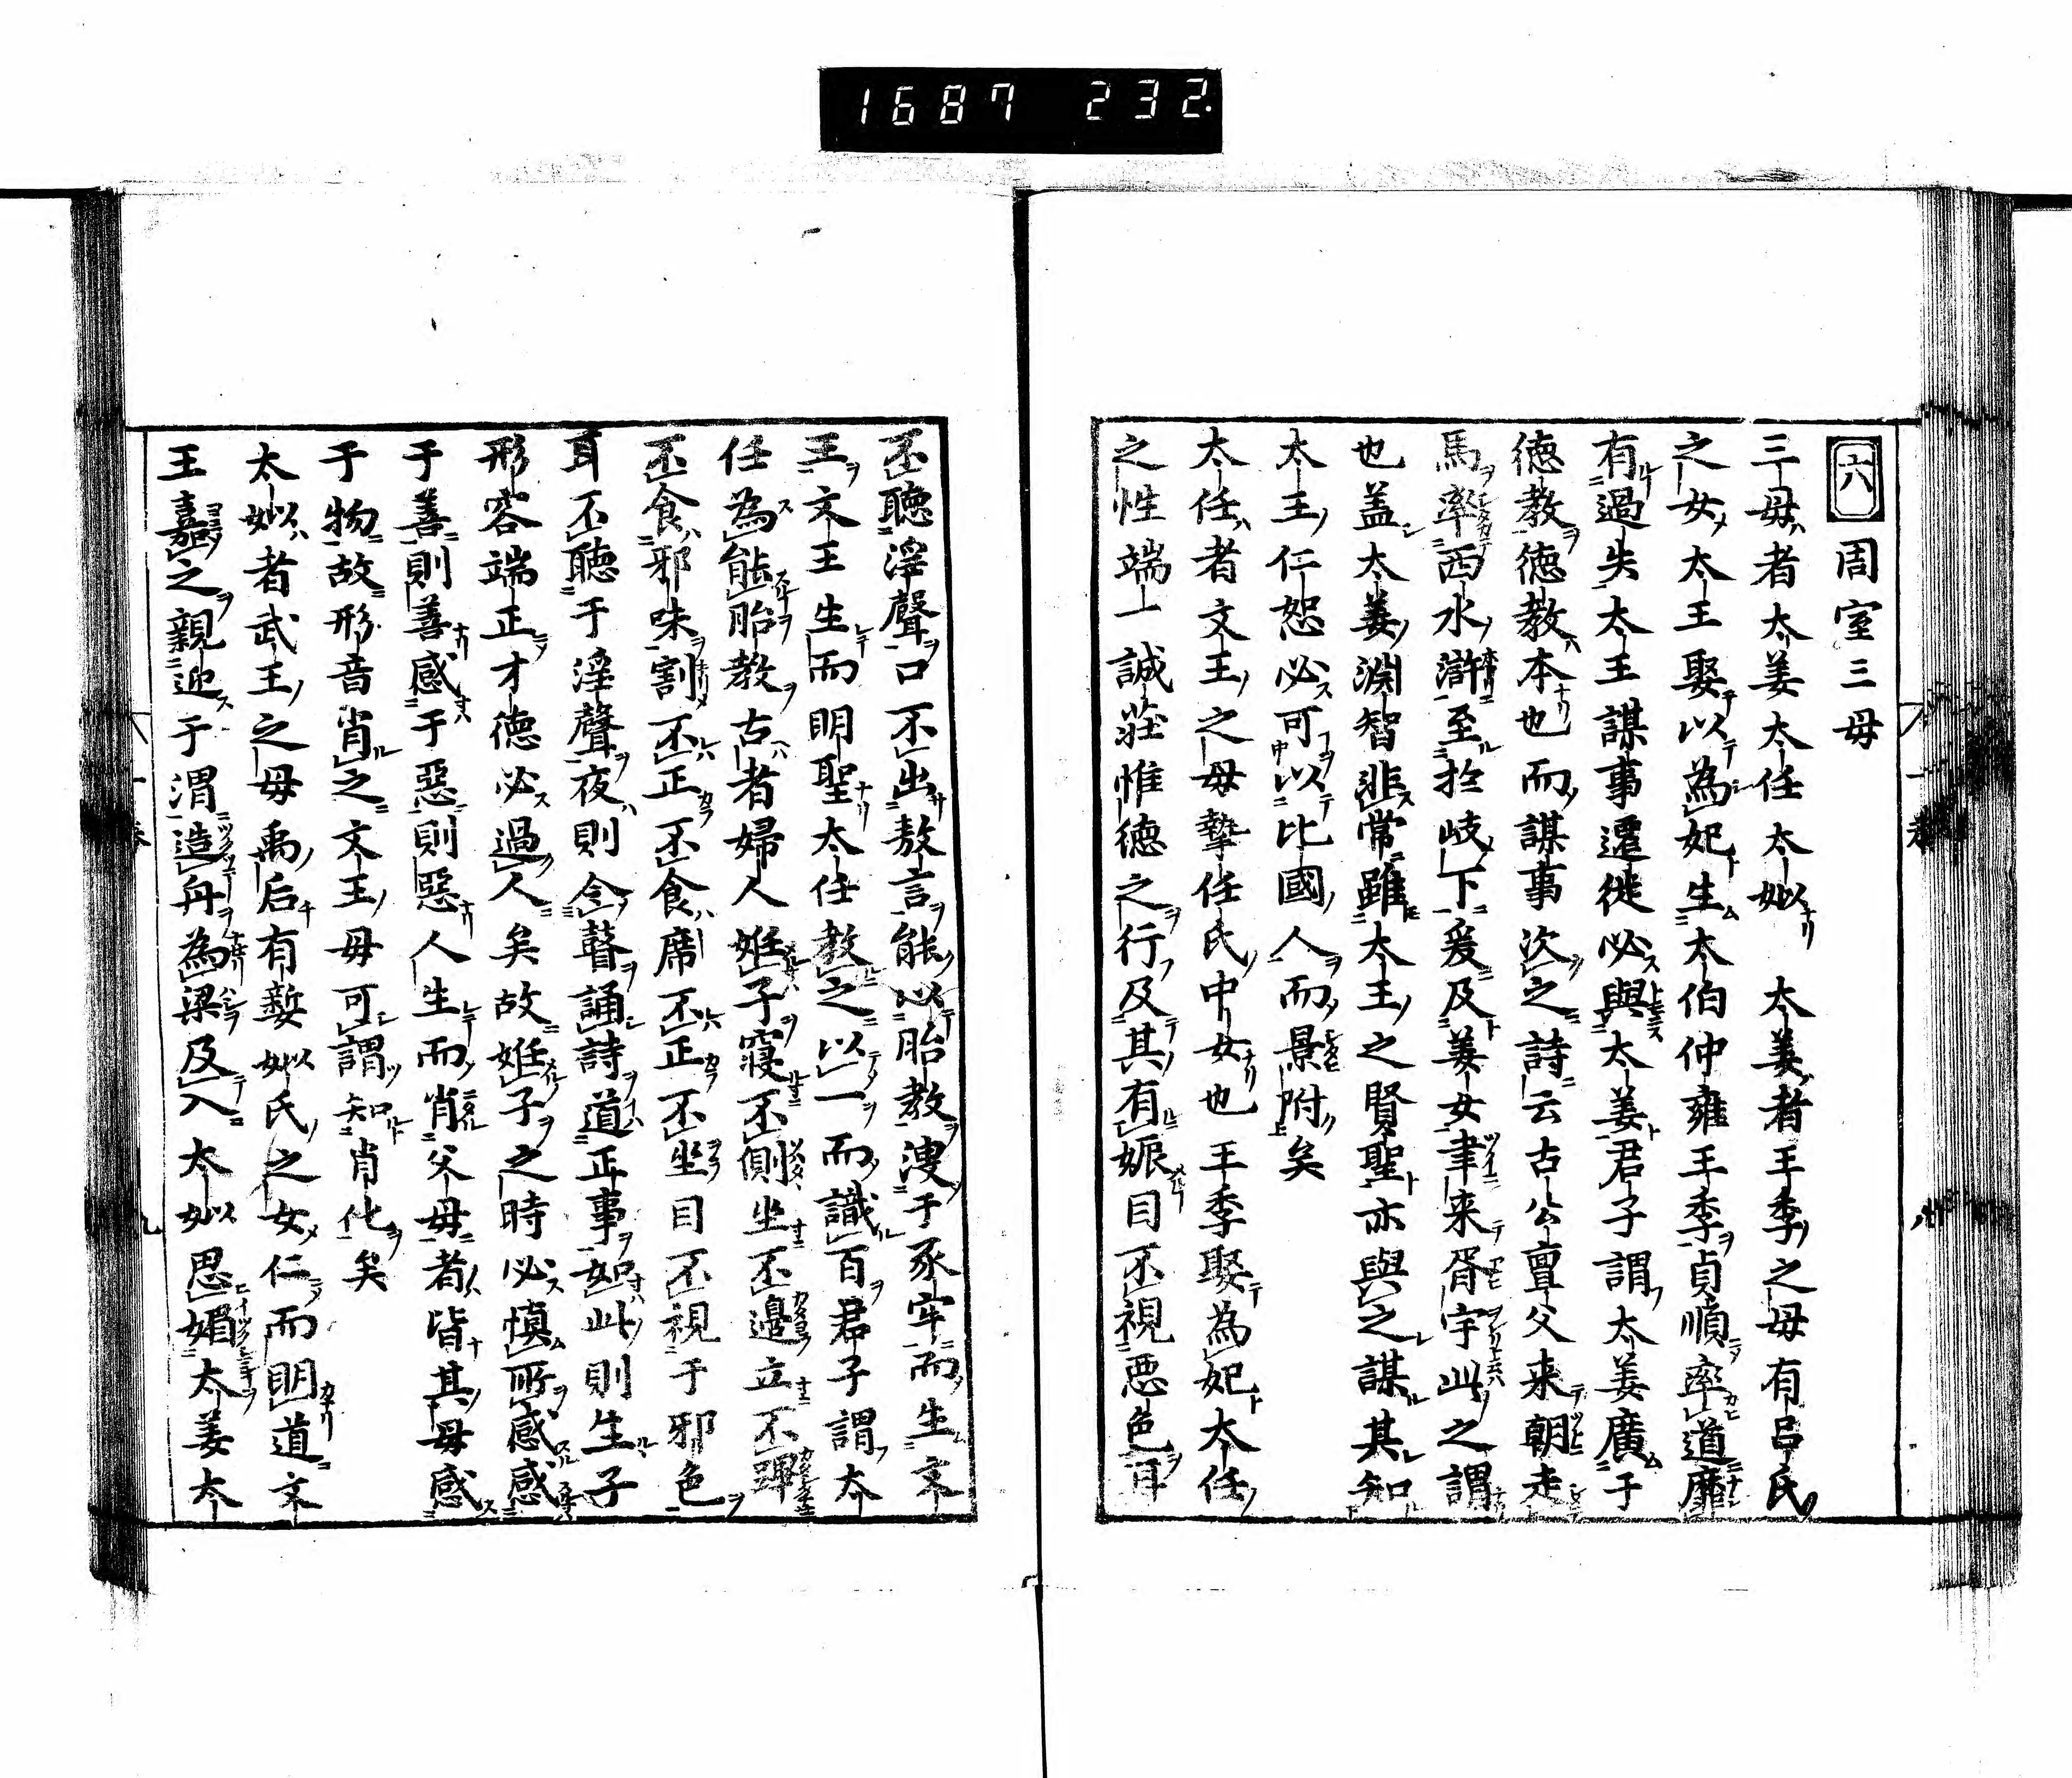 1687 232.
六 周室三母
三母者太姜太任太姒 太姜者王季之母有呂氏
之女太王娶以為妃生太伯仲雍王季貞順率道靡
有過失太王謀事遷徙必與太姜君子謂太姜廣于
徳教徳教本也而謀事次之詩云古公亶父来朝走
馬率西水滸至於岐下爰及姜女聿来胥宇此之謂
也盖太姜淵智非常雖太王之賢聖亦與之謀其知
太王仁恕必可以比國人而景附矣
太任者文王之母摯任氏中女也王季娶為妃太任
之性端一誠荘惟徳之行及其有娠目不視悪色耳
不聴淫聲口不出敖言能以胎教溲于豕牢而生文
王文王生而明聖太任教之以一而識百君子謂太
任為能胎教古者婦人姙子寝不側坐不邉立不蹕
不食邪味割不正不食席不正不坐目不視于邪色
耳不聴于淫聲夜則令瞽誦詩道正事如此則生子
形容端正才徳必過人矣故姙子之時必慎所感感
于善則善感于惡則惡人生而肖父母者皆其母感
于物故形音肖之文王母可謂知肖化矣
太姒者武王之母禹后有㜪姒氏之女仁而明道文
王嘉之親迎于渭造舟為梁及入太姒思媚太姜太